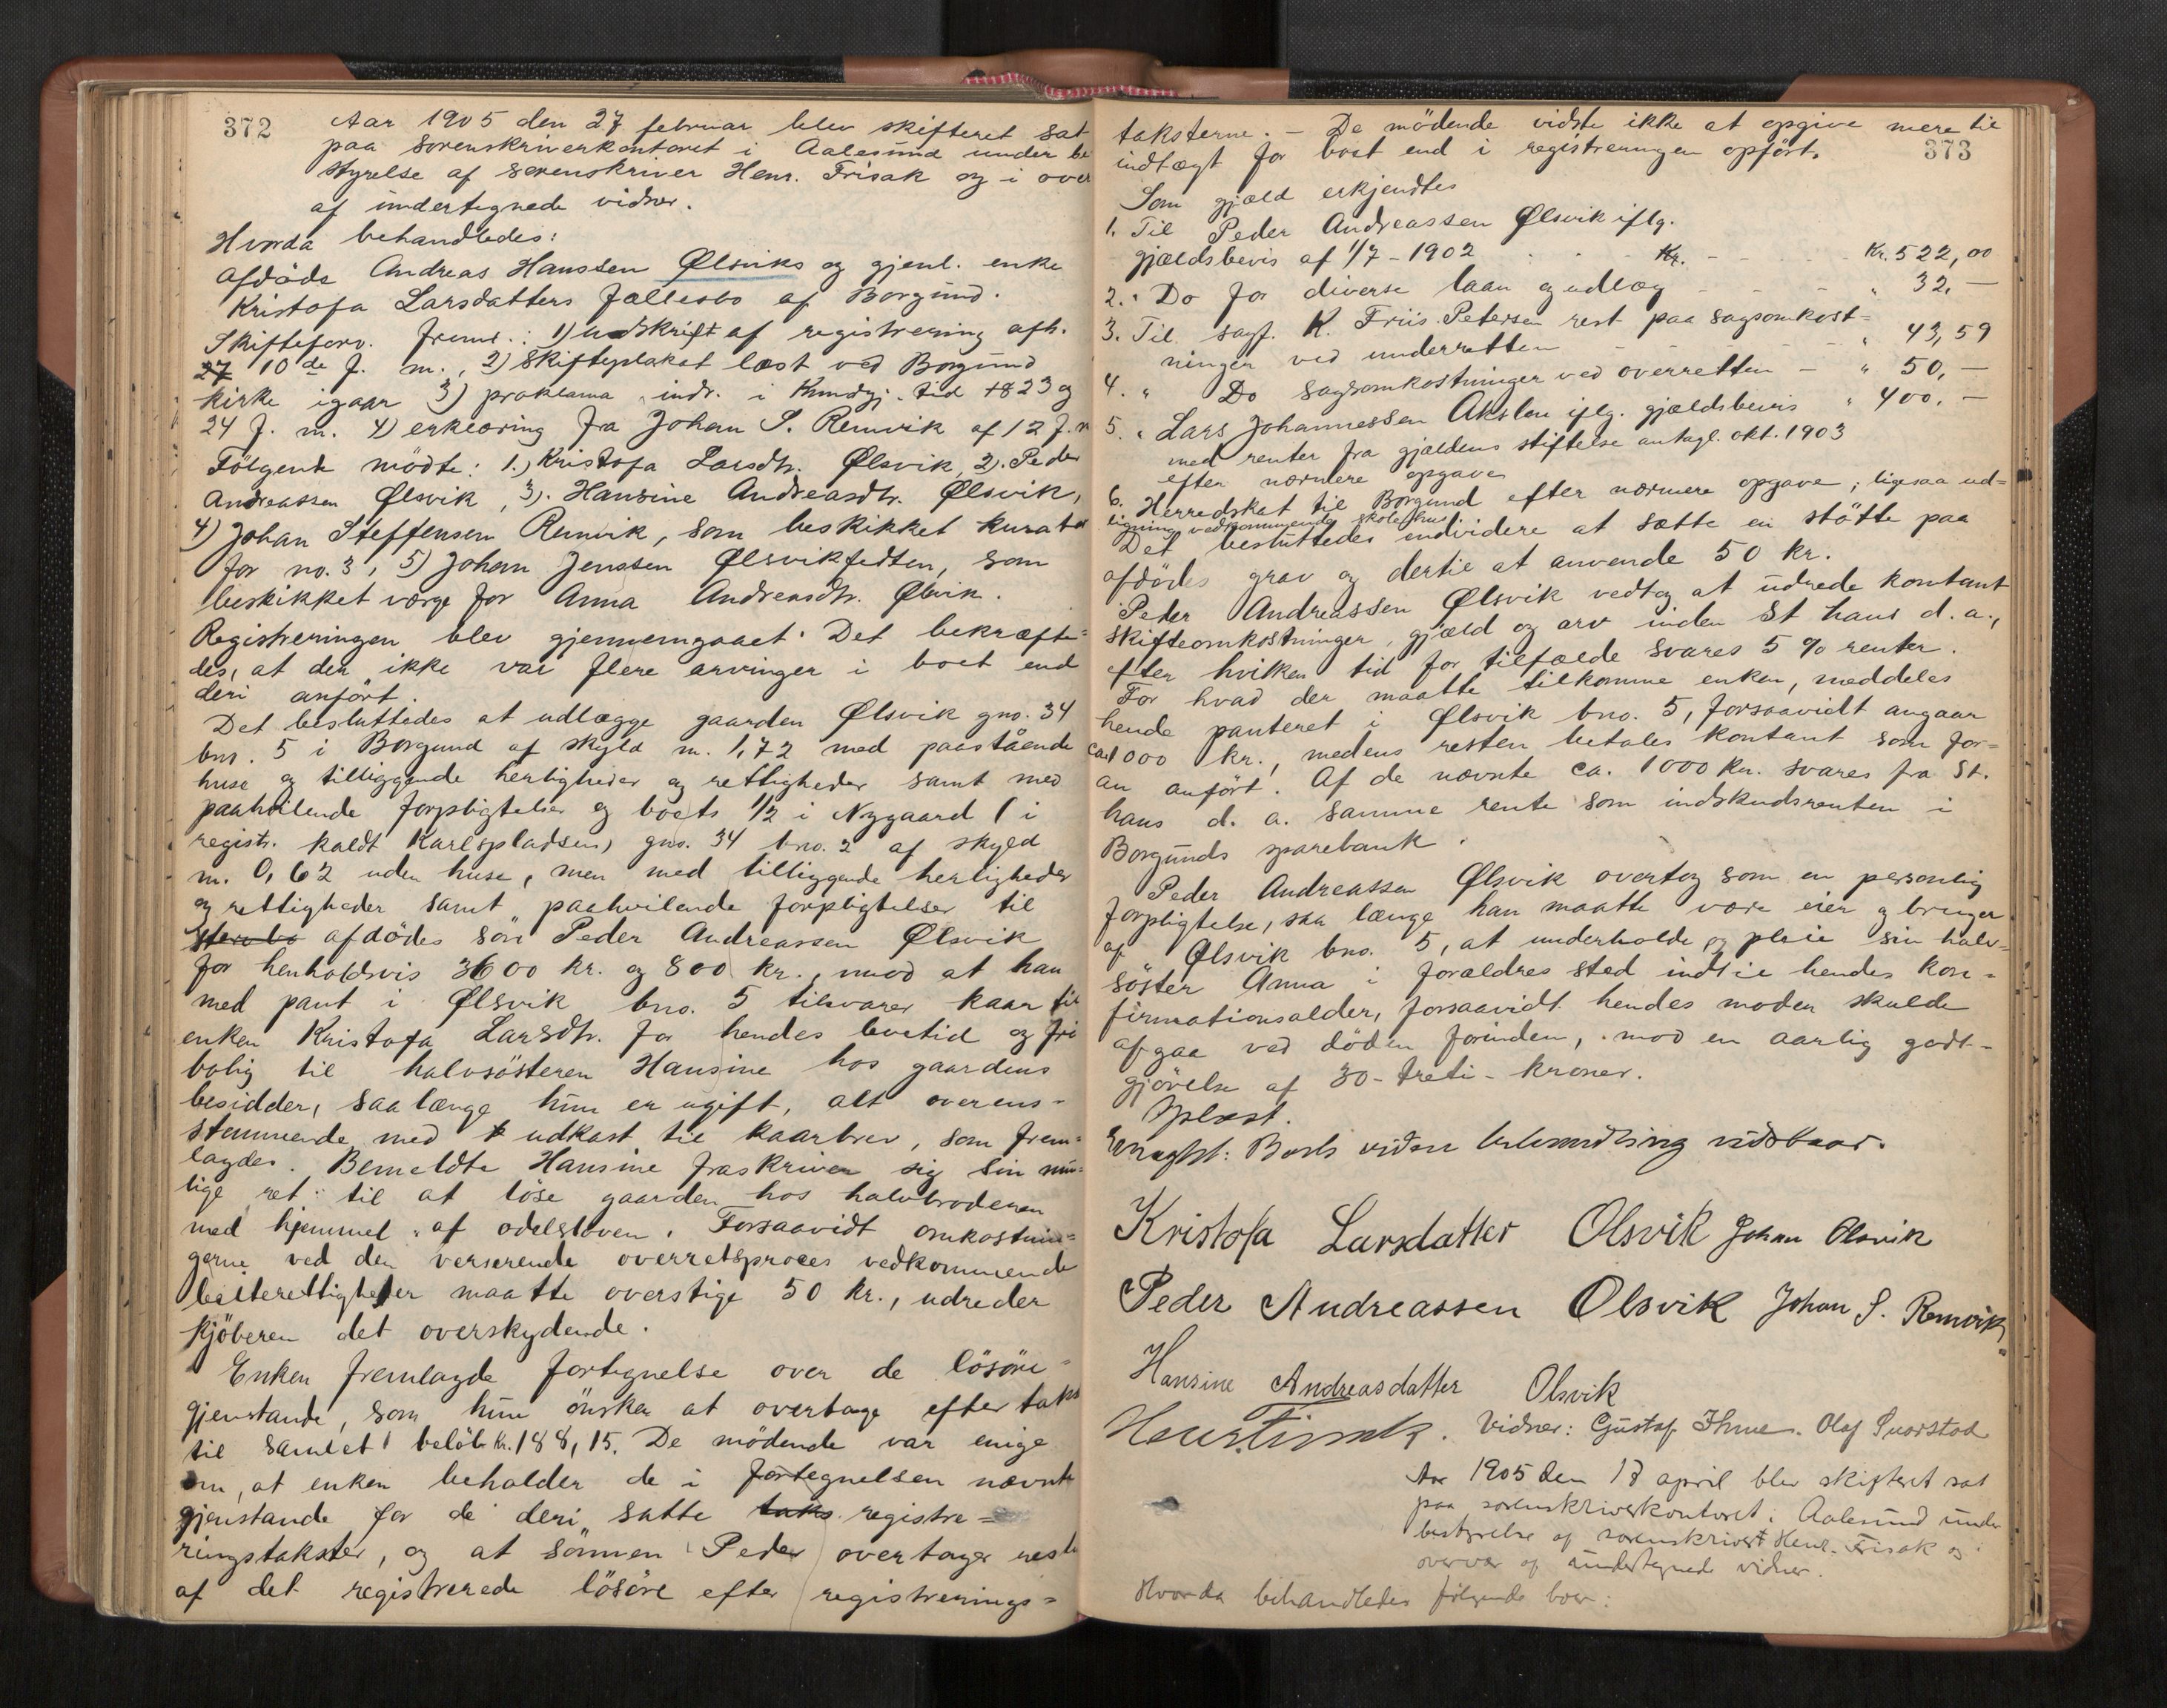 372
Aar 1905 den 27 februar blev skifteret sat
paa sorenskriverkontoret i Aalesund under be
styrelse af sorenskriver Henr. Frisak og i over
af undertegnede vidner.
Hvorda behandledes:
Afdøde Andreas Hanssen Ølsviks og gjenl. enke
Kristofa Larsdatters fællesbo af Borgund.
Skifteforv. freml.: 1) udskrift af registrering afh.
27 10de f. m., 2) skifteplakat læst ved Borgund
kirke igaar 3) proklama indr. i Kundgj. tid 18 23 og
24 f. m. 4) erklæring fra Johan S. Remvik af 12 f. m
Følgende mødte: 1.) Kristofa Larsdtr. Ølsvik, 2). Peder
Andreassen Ølsvik, 3). Hansine Andreasdtr. Ølsvik,
4) Johan Steffensen Remvik, som beskikket kurator
for no. 3, 5) Johan Jenssen Ølsvikfedten, som
beskikket værge for Anna Andreasdtr. Ølsvik.
Registreringen blev gjennemgaaet. Det bekræfte=
des, at der ikke var flere arvinger i boet end
deri anført.
Det besluttedes at udlægge gaarden Ølsvik gno. 34
bno. 5 i Borgund af skyld m. 1,72 med paastående
huse og tilliggende herligheder og rettigheder samt med
paahvilende forpligtelser og boets 1/2 i Nygaard (i
registr. kaldt Karlspladsen) gno. 34 bno. 2 af skyld
m. 0,62 uden huse, men med tilliggende herligheder
og rettigheder samt paahvilende forpligtelser til
stervbo afdødes søn Peder Andreassen Ølsvik
for henholdsvis 3600 kr. og 800 kr., mod at han
med pant i Ølsvik bno. 5 tilsvarer kaar til
enken Kristofa Larsdtr. for hendes levetid og fri
bolig til halvsøsteren Hansine hos gaardens
besidder, saa længe hun er ugift, alt overens-
stemmende med udkast til kaarbrev, som frem=
lagdes. Bemeldte Hansine fraskriver sig sin mu=
lige ret til at løse gaarden hos halvbroderen
med hjemmel af odelsloven. Forsaavidt omkostnin=
gerne ved den verserende overretsproces vedkommende
beiterettigheder maatte overstige 50 kr., udreder
kjøberen det overskydende.
Enken fremlagde fortegnelse over de løsøre=
gjenstande, som hun ønsker at overtage efter takst
til samlet beløb kr. 188,15. De mødende var enige
om, at enken beholder de i fortegnelsen nævnte
gjenstande for de deri satte taks registre=
ringstakster, og at sønnen Peder overtager resten
af det registrerede løsøre efter registrerings=
373
taksterne. - De mødende vidste ikke at opgive mere til
indtægt for boet end i registreringen opført.
Som gjæld erkjendtes
1. Til Peder Andreassen Ølsvik iflg.
gjældsbevis af 1/7 - 1902 Kr. - - Kr. 522,00
2. " Do for diverse laan og udlæg - - - " 32, -
3. Til sagf. K. Friis-Petersen rest paa sagsomkost=
ninger ved underretten - - - " 43,59
4. " Do sagsomkostninger ved overretten - " 50, -
5. " Lars Johannessen Akslen iflg. gjældsbevis " 400, -
med renter fra gjældens stiftelse antagl. okt. 1903
efter nærmere opgave
6. Herredskat til Borgund efter nærmere opgave, ligesaa ud=
ligning vedkommende skolehus
Det besluttedes endvidere at sætte en støtte paa
afdødes grav og dertil at anvende 50 kr.
Peder Andreassen Ølsvik vedtog at udrede kontant
skifteomkostninger, gjæld og arv inden St hans d. a.,
efter hvilken tid for tilfælde svares 5 % renter.
For hvad der maatte tilkomme enken, meddeles
hende panteret i Ølsvik bno. 5, forsaavidt angaar
ca 1000 kr., medens resten betales kontant som for=
an anført. Af de nævnte ca. 1000 kr. svares fra St.
hans d. a. samme rente som indskudsrenten i
Borgunds sparebank.
Peder Andreassen Ølsvik overtog som en personlig
forpligtelse, saa længe han maatte være eier og bruger
af Ølsvik bno. 5, at underholde og pleie sin halv=
søster Anna i forældres sted indtil hendes kon=
firmationsalder, forsaavidt hendes moder skulde
afgaa ved døden forinden, mod en aarlig godt-
gjørelse af 30 - treti - kroner.
Oplæst.
Eragtet: Boets videre behandling udstaar.
Kristofa Larsdatter Olsvik Johan Olsvik
Peder Andreassen Olsvik Johan S. Remvik
Hansine Andreasdatter Olsvik
Henr. Frisak. Vidner: Gustaf Ihme. Olaf
Aar 1905 den 18 april blev skifteret sat
paa sorenskriverkontoret i Aalesund under
bestyrelse af sorenskriver Henr. Frisak og i
overvær af undertegnede vidner.
Hvorda behandledes følgende boer: